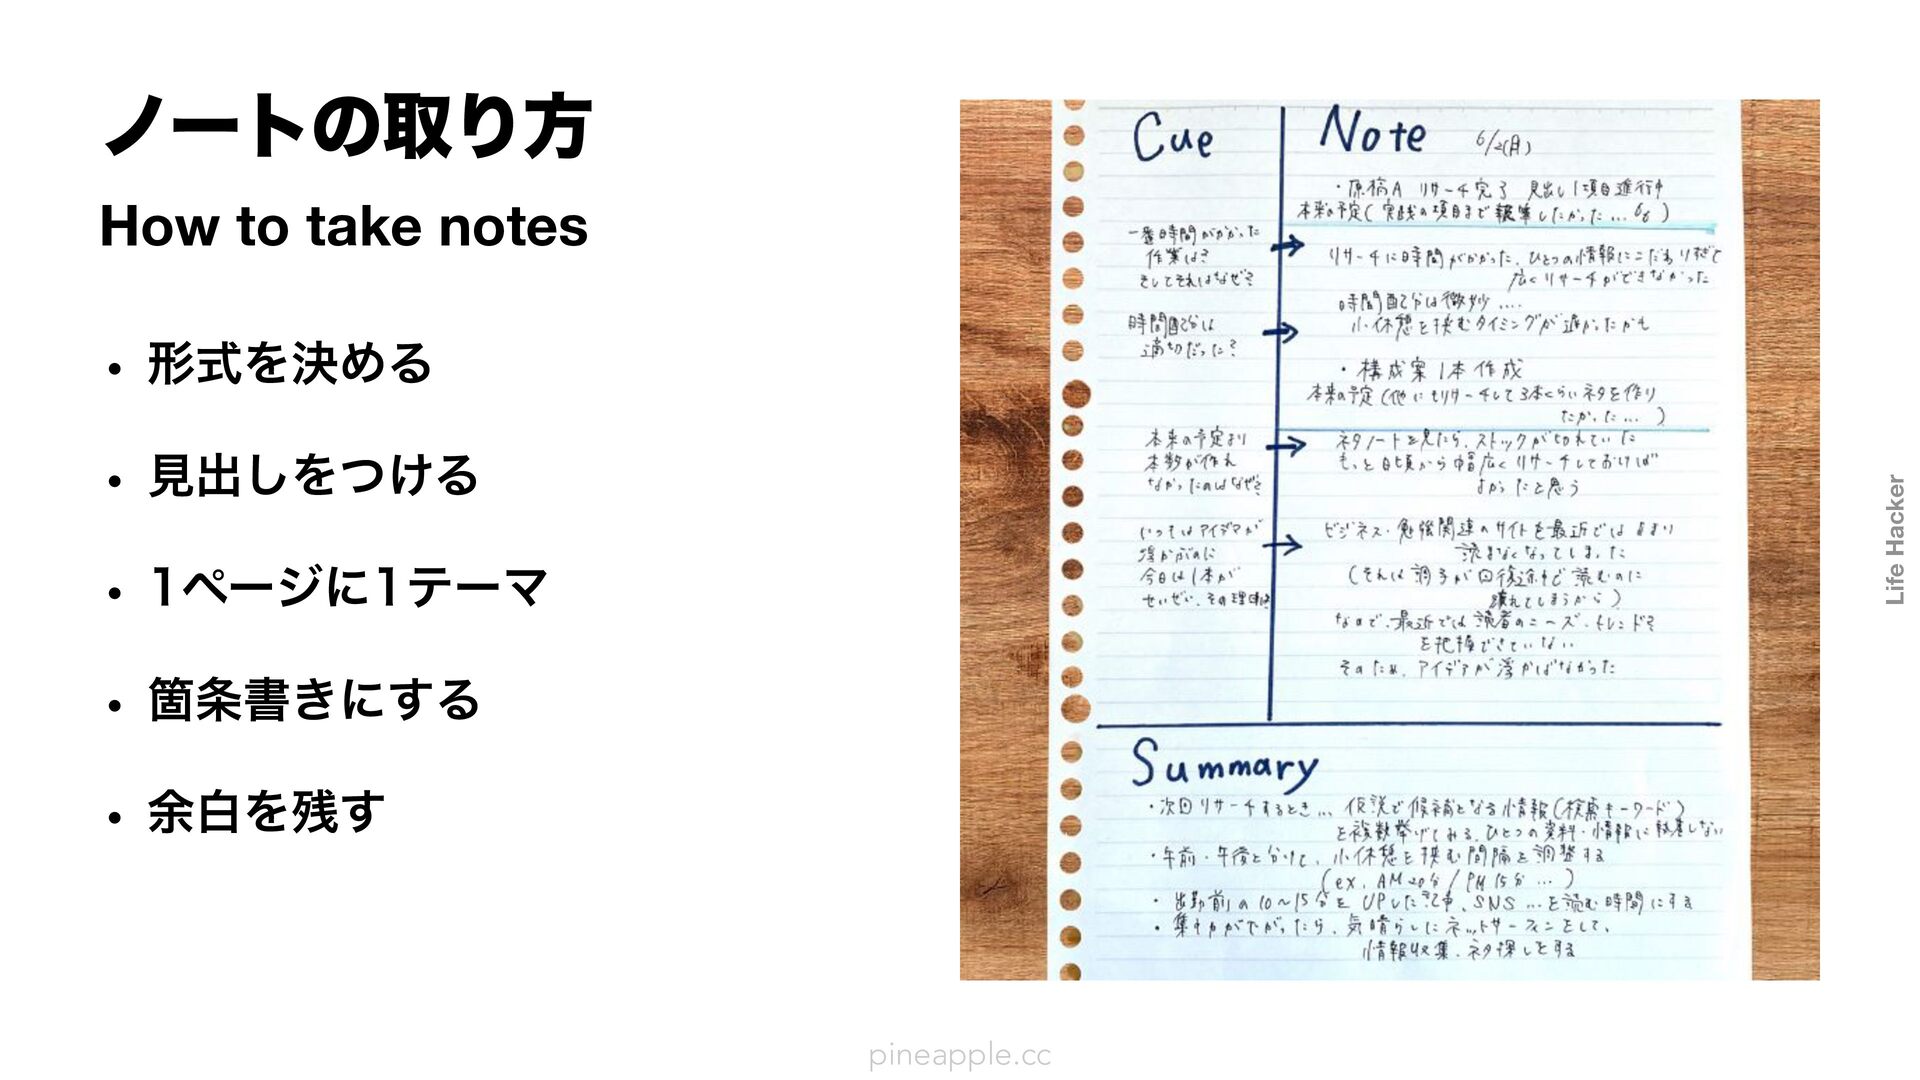 ノートの取り方
How to take notes
• 形式を決める
• 見出しをつける
• 1ページに1テーマ
• 箇条書きにする
• 余白を残す
Cue
一番時間がかかった
作業は?
そしてそれはなぜ?
時間配分は
適切だった?
本来の予定より
本数が作れ
なかったのはなぜ?
いつもはアイデアが
浮かぶのに
今日は1本が
せいぜい、その理由は
Note 6/2(月)
・原稿A リサーチ完了 見出し1項目進行中
本来の予定(実践の項目まで執筆したかった…)
リサーチに時間がかかった、ひとつの情報にこだわりすぎて
広くリサーチができなかった
時間配分は微妙….
小休憩を挟むタイミングが遅かったかも
・構成案1本作成
本来の予定(他にもリサーチして3本くらいネタを作り
たかった…)
ネタノートを見たら、ストックが切れていた
もっと日頃から幅広くリサーチしておけば
よかったと思う
ビジネス・勉強関連のサイトを最近ではあまり
読まなくなってしまった
(それは調子が回復途中で読むのに
疲れてしまうから)
なので、最近では読者のニーズ・トレンド
を把握できていない
そのため、アイデアが浮かばなかった
Summary
・次回リサーチするとき… 仮説で候補となる情報(検索キーワード)
を複数挙げてみる、ひとつの資料・情報に執着しない
・午前・午後と分けて、小休憩を挟む間隔を調整する
(ex. AM 20分/PM 15分 …)
・出勤前の10〜15分を UPした記事、SNS…を読む時間にする
・集中力が下がったら、気晴らしにネットサーフィンをして、
情報収集、ネタ探しをする
Life Hacker
pineapple.cc